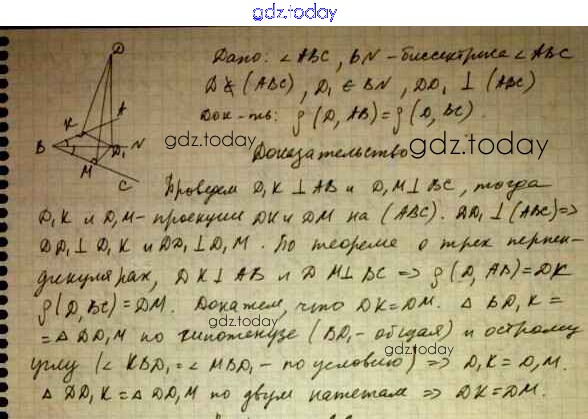 gdz.today
Дано: ∠ABC, BN - биссектриса ∠ABC
D ∉ (ABC), D₁ ∈ BN, DD₁ ⊥ (ABC)
Док-ть: ρ(D, AB) = ρ(D, BC).
gdz.today
gdz.today
Доказательство
D
A
K
B
D₁
N
M
C
Проведем D₁K ⊥ AB и D₁M ⊥ BC, тогда
D₁K и D₁M - проекции DK и DM на (ABC). DD₁ ⊥ (ABC) =>
DD₁ ⊥ D₁K и DD₁ ⊥ D₁M. По теореме о трех перпен-
дикулярах, DK ⊥ AB и DM ⊥ BC => ρ(D, AB) = DK
ρ(D, BC) = DM. Докажем, что DK = DM. △ BD₁K =
gdz.today
= △ BD₁M по гипотенузе (BD₁ - общая) и острому
углу (∠KBD₁ = ∠MBD₁ - по условию) => D₁K = D₁M.
gdz.today
△ DD₁K = △ DD₁M по двум катетам => DK = DM.